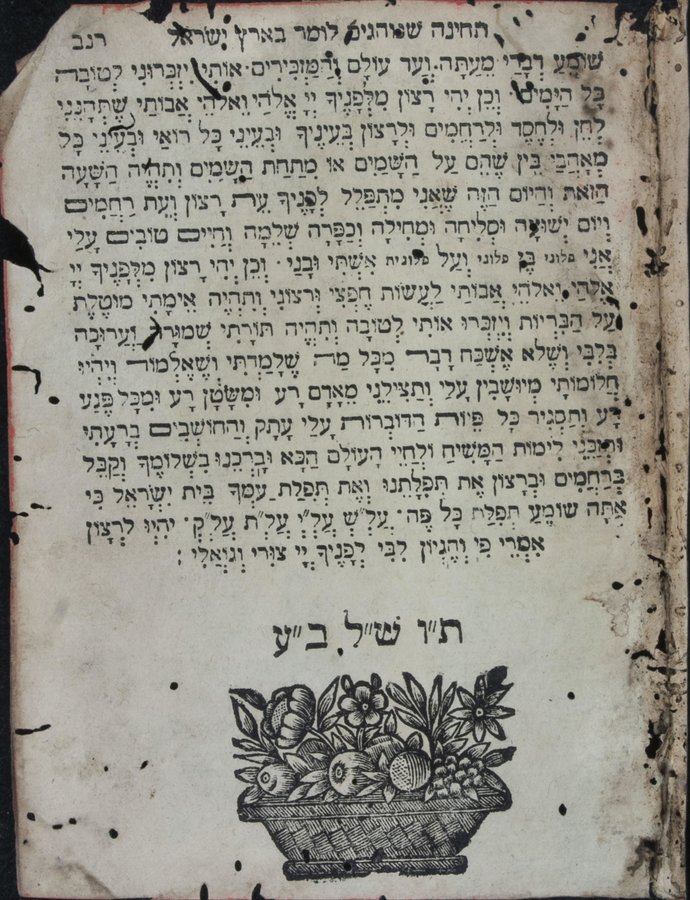 תחינה שנוהגים לומר בארץ ישראל רנב
שׁוֹמֵעַ דְבָרַי מֵעַתָּה וְעַד עוֹלָם וְהַמַזְכִּירִים אוֹתִי יִזְכְּרוּנִי לְטוֹבָה
כָּל הַיָמִים וְכֵן יְהִי רָצוֹן מִלְּפָנֶיךָ יְיָ אֱלֹהַי וֵאלֹהֵי אֲבוֹתַי שֶׁתְּהָנֵּנִי
לְחֵן וּלְחֶסֶד וּלְרַחֲמִים וּלְרָצוֹן בְּעֵינֶיךָ וּבְעֵינֵי כָּל רוֹאַי וּבְעֵינֵי כָּל
מְאָהֲבַי בֵּין שֶׁהֵם עַל הַשָּׁמַיִם אוֹ מִתַּחַת הַשָּׁמַיִם וְתִהְיֶה הַשָּׁעָה
הַזֹאת וְהַיוֹם הַזֶּה שֶׁאֲנִי מִתְפַּלֵל לְפָנֶיךָ עֵת רָצוֹן וְעֵת רַחֲמִים
וְיוֹם יְשׁוּעָה וּסְלִיחָה וּמְחִילָה וְכַפָּרָה שְׁלֵמָה וְחַיִּים טוֹבִים עָלַי
אֲנִי פלוני בֶּן פלוני וְעַל פלונית אִשְׁתִּי וּבָנַי וְכֵן יְהִי רָצוֹן מִלְּפָנֶיךָ יְיָ
אֱלֹהַי וֵאלֹהֵי אֲבוֹתַי לַעֲשׂוֹת חֶפְצִי וּרְצוֹנִי וְתִהְיֶה אֵימָתִי מוּטֶלֶת
עַל הַבְּרִיוֹת וְיִזְכְּרוּ אוֹתִי לְטוֹבָה וְתִהְיֶה תּוֹרָתִי שְׁמוּרָה וַעֲרוּכָה
בְּלִבִּי וְשֶׁלֹא אֶשְׁכַּח דָבָר מִכָּל מַה שֶׁלָמַדְתִּי וְשֶׁאֶלְמוֹד וְיִהְיוּ
חֲלוֹמוֹתַי מְיוּשָׁבִין עָלַי וְתַצִילֵנִי מֵאָדָם רָע וּמִשָּׂטָן רָע וּמִכָּל פֶּגַע
רָע וְתַסְגִיר כָּל פִּיוֹת הַדּוֹבְרוֹת עָלַי עָתָק וְהַחוֹשְׁבִים בְּרָעָתִי
וּתְזַכֵּנִי לִימוֹת הַמָּשִׁיחַ וּלְחַיֵי הָעוֹלָם הַבָּא וּבָרְכֵנוּ בִשְׁלוֹמֶךָ וְקַבֵּל
בְּרַחֲמִים וּבְרָצוֹן אֶת תְּפִלָּתֵנוּ וְאֶת תְּפִלַּת עַמְּךָ בֵּית יִשְׂרָאֵל כִּי
אַתָּה שׁוֹמֵעַ תְּפִלַּת כָּל פֶּה עַל״שׁ עַל״י עַל״ת עַל״ק יִהְיוּ לְרָצוֹן
אִמְרֵי פִי וְהֶגְיוֹן לִבִּי לְפָנֶיךָ יְיָ צוּרִי וְגוֹאֲלִי :
ת״ו ש״ל ב״ע